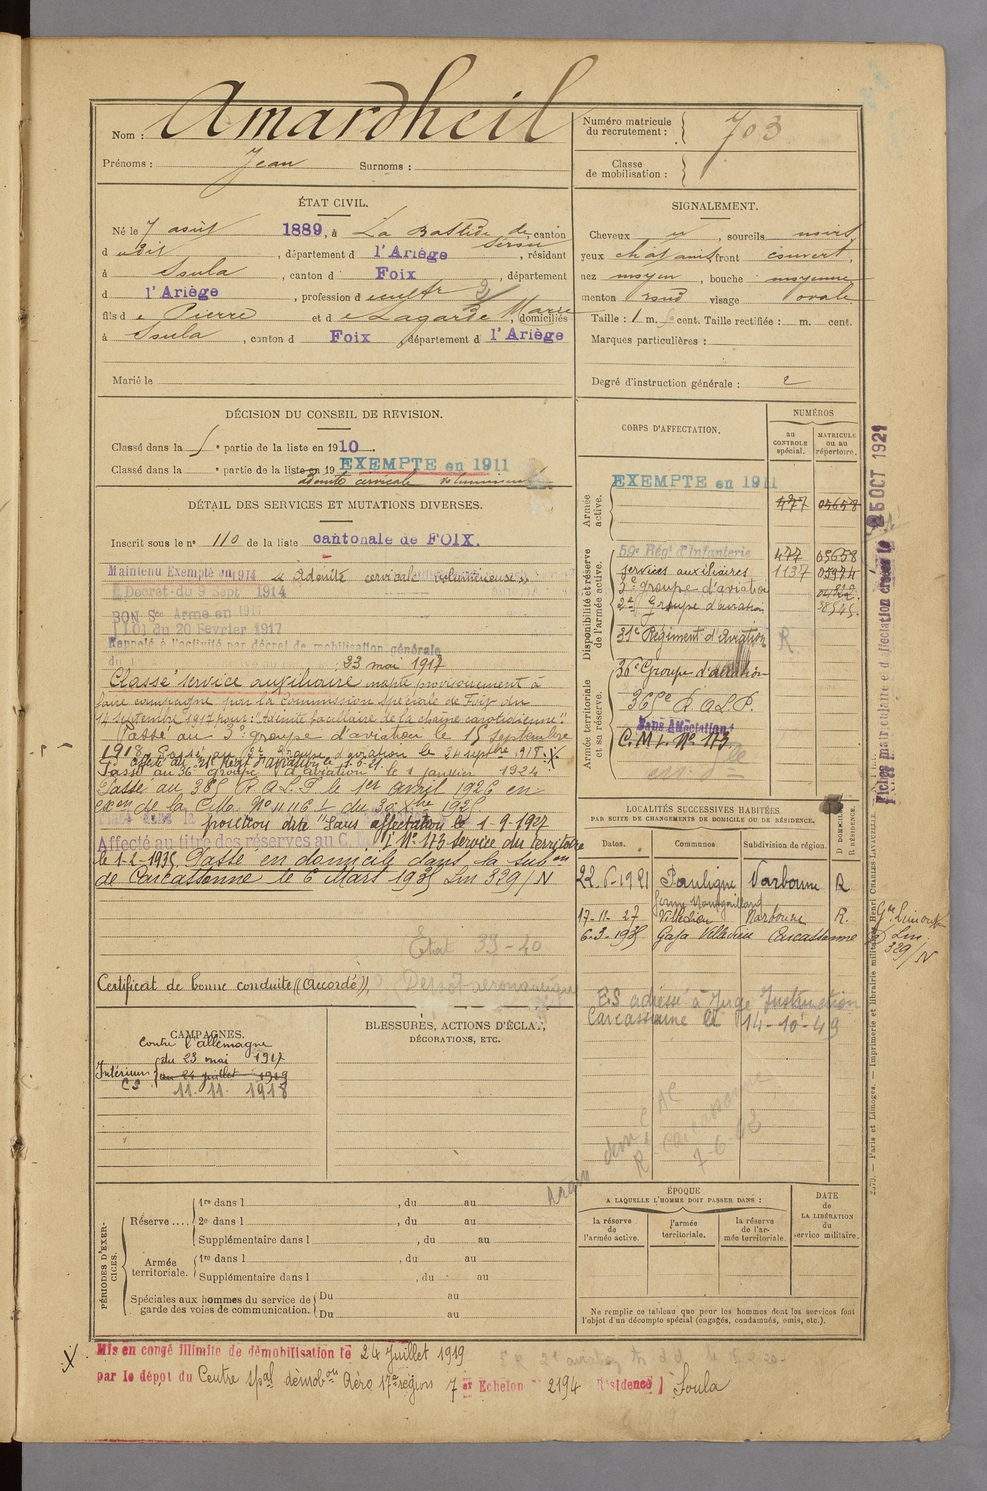 Nom : Amardheil
Prénoms : Jean Surnoms :
Numéro matricule du recrutement : 703
Classe de mobilisation :
ÉTAT CIVIL.
Né le 7 août 1889, à La Bastide de Serou, canton
d dit, département d l'Ariège, résidant
à Soula, canton d Foix, département
d l'Ariège, profession d cultr 2/3
fils d e Pierre et d e Lagarde Marie, domiciliés
à Soula, canton d Foix, département d l'Ariège
Marié le
SIGNALEMENT.
Cheveux n, sourcils noirs
yeux chat front couvert,
nez moyen, bouche moyenne
menton rond visage ovale
Taille : 1 m. 6 cent. Taille rectifiée : m. cent.
Marques particulières :
Degré d'instruction générale : 2
DÉCISION DU CONSEIL DE REVISION.
Classé dans la 5e partie de la liste en 1910.
Classé dans la e partie de la liste en 19 EXEMPTE en 1911
adénite cervicale volumineuse
DÉTAIL DES SERVICES ET MUTATIONS DIVERSES.
Inscrit sous le n° 110 de la liste cantonale de FOIX.
Maintenu Exempté en 1914 " Adénite cervicale volumineuse"
Décret du 9 Sept 1914
BON Sce Armé en 1917
Loi du 20 Février 1917
Rappelé à l'activité par décret de mobilisation générale
du 23 mai 1917
Classé service auxiliaire inapte provisoirement à
faire campagne par la Commission spéciale de Foix du
14 septembre 1917 pour : "adénite bacillaire de la chaine carotidienne".
Passé au 3e groupe d'aviation le 15 septembre
1918. Passé au 2e Groupe d'aviation le 24 septbre 1918. X
Passé au 36e groupe d'aviation le 1 janvier 1924.
Passé au 385 R.A.L.P. le 1er avril 1926 en
exon de la C.M. N° 4116 du 30 Xbre 1925
Placé dans la position dite "Sans affectation le 1-9-1927
Affecté au titre des réserves au C.M.I. N° 173 service du territoire
le 1-2-1935. Passé en domicile dans la subon
de Carcassonne le 6 Mars 1935 Lm 329/N
Etat 39-40
Certificat de bonne conduite "(Accordé)", Dépôt aéronautique
CORPS D'AFFECTATION.
NUMÉROS
au CONTROLE spécial.
MATRICULE ou au répertoire.
Armée active.
EXEMPTE en 1911
477 05658
Disponibilité et réserve de l'armée active.
59e Régt d'Infanterie 477 05658
services auxiliaires 1137 05974
3e groupe d'aviation
2e Groupe d'aviation
31e Régiment d'Aviation R.
Armée territoriale et sa réserve.
36e Groupe d'aviation
365e R.A.L.P.
Sans Affectation
C.M.I. N° 173
Fiches matriculaire et d'affectation créées le 25 OCT 1921
LOCALITÉS SUCCESSIVES HABITÉES
PAR SUITE DE CHANGEMENTS DE DOMICILE OU DE RÉSIDENCE.
Dates. Communes Subdivision de région. D DOMICILE R RÉSIDENCE.
22-6-1921 Pauligne Narbonne R
17-11-27 Villedieu Narbonne R.
6-3-1935 Gaja Villedieu Carcassonne
Lm 329/N
BS adressé à Juge Instruction
Carcassonne le 14-10-49
Carcassonne
7-6-43
CAMPAGNES.
Contre l'Allemagne
Intérieur du 23 mai 1917
C S au 24 juillet 1919
11-11-1918
BLESSURES, ACTIONS D'ÉCLAT,
DÉCORATIONS, ETC.
PÉRIODES D'EXERCICES.
Réserve ....
1re dans l , du au
2e dans l , du au
Supplémentaire dans l , du au
Armée territoriale.
1re dans l , du au
Supplémentaire dans l , du au
Spéciales aux hommes du service de garde des voies de communication.
Du au
Du au
ÉPOQUE
A LAQUELLE L'HOMME DOIT PASSER DANS :
la réserve de l'armée active.
l'armée territoriale.
la réserve de l'armée territoriale.
DATE DE LA LIBÉRATION du service militaire.
Ne remplir ce tableau que pour les hommes dont les services font
l'objet d'un décompte spécial (engagés, condamnés, omis, etc.).
Paris et Limoges. — Imprimerie et librairie militaires Henri CHARLES-LAVAUZELLE.
X Mis en congé illimité de démobilisation le 24 Juillet 1919
par le dépôt du Centre spal démobon Aéro 17e région 7er Echelon n° 2194 Résidence ) Soula